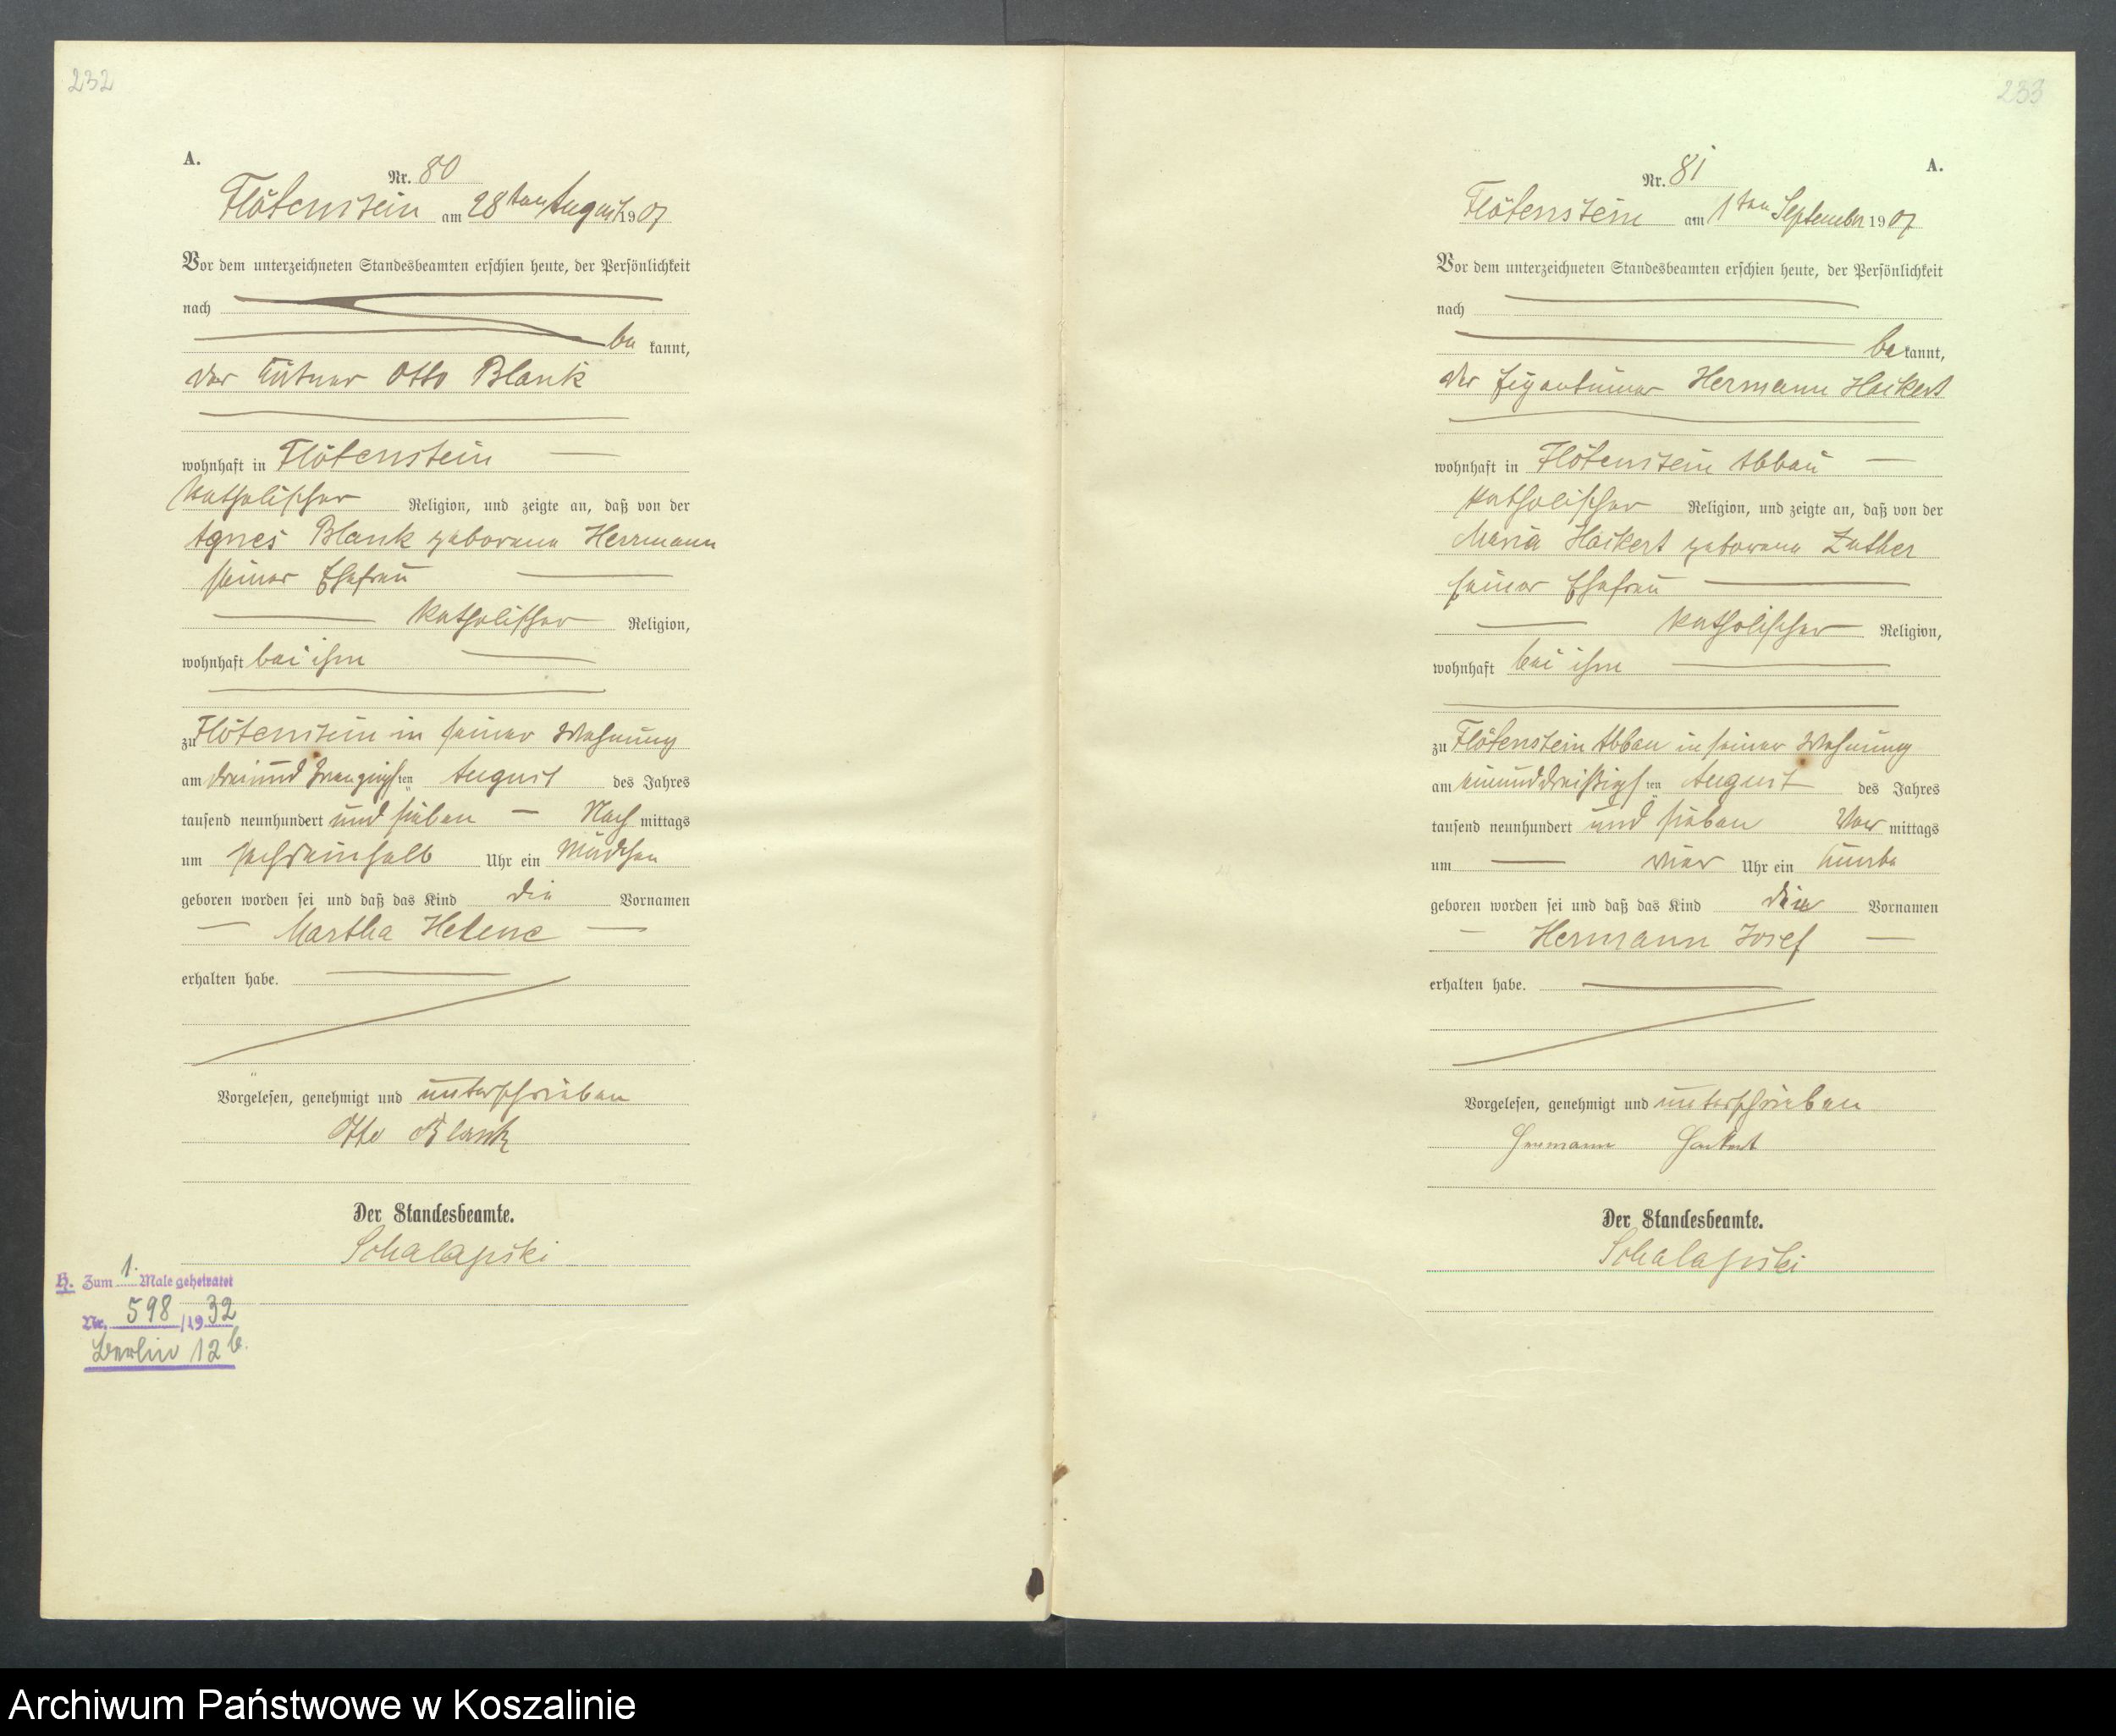 232
A.
Nr. 80
Flötenstein am 28ten August 1907
Vor dem unterzeichneten Standesbeamten erschien heute, der Persönlichkeit
nach
be kannt,
der Kätner Otto Blank
wohnhaft in Flötenstein
katholischer Religion, und zeigte an, daß von der
Agnes Blank geborene Herrmann
seiner Ehefrau
katholischer Religion,
wohnhaft bei ihm
zu Flötenstein in seiner Wohnung
am dreiundzwanzigsten August des Jahres
tausend neunhundert und sieben Nach mittags
um sechseinhalb Uhr ein Mädchen
geboren worden sei und daß das Kind die Vornamen
Martha Helene
erhalten habe.
Vorgelesen, genehmigt und unterschrieben
Otto Blank
Der Standesbeamte.
Schalapski
H. Zum 1. Male geheiratet
Nr. 598/1932
Berlin 12b.
233
A.
Nr. 81
Flötenstein am 1ten September 1907
Vor dem unterzeichneten Standesbeamten erschien heute, der Persönlichkeit
nach
be kannt,
der Eigentümer Hermann Hackert
wohnhaft in Flötenstein Abbau
katholischer Religion, und zeigte an, daß von der
Maria Hackert geborene Zuther
seiner Ehefrau
katholischer Religion,
wohnhaft bei ihm
zu Flötenstein Abbau in seiner Wohnung
am einunddreißigsten August des Jahres
tausend neunhundert und sieben Vor mittags
um vier Uhr ein Knabe
geboren worden sei und daß das Kind die Vornamen
Hermann Josef
erhalten habe.
Vorgelesen, genehmigt und unterschrieben
Hermann Hackert
Der Standesbeamte.
Schalapski
Archiwum Państwowe w Koszalinie